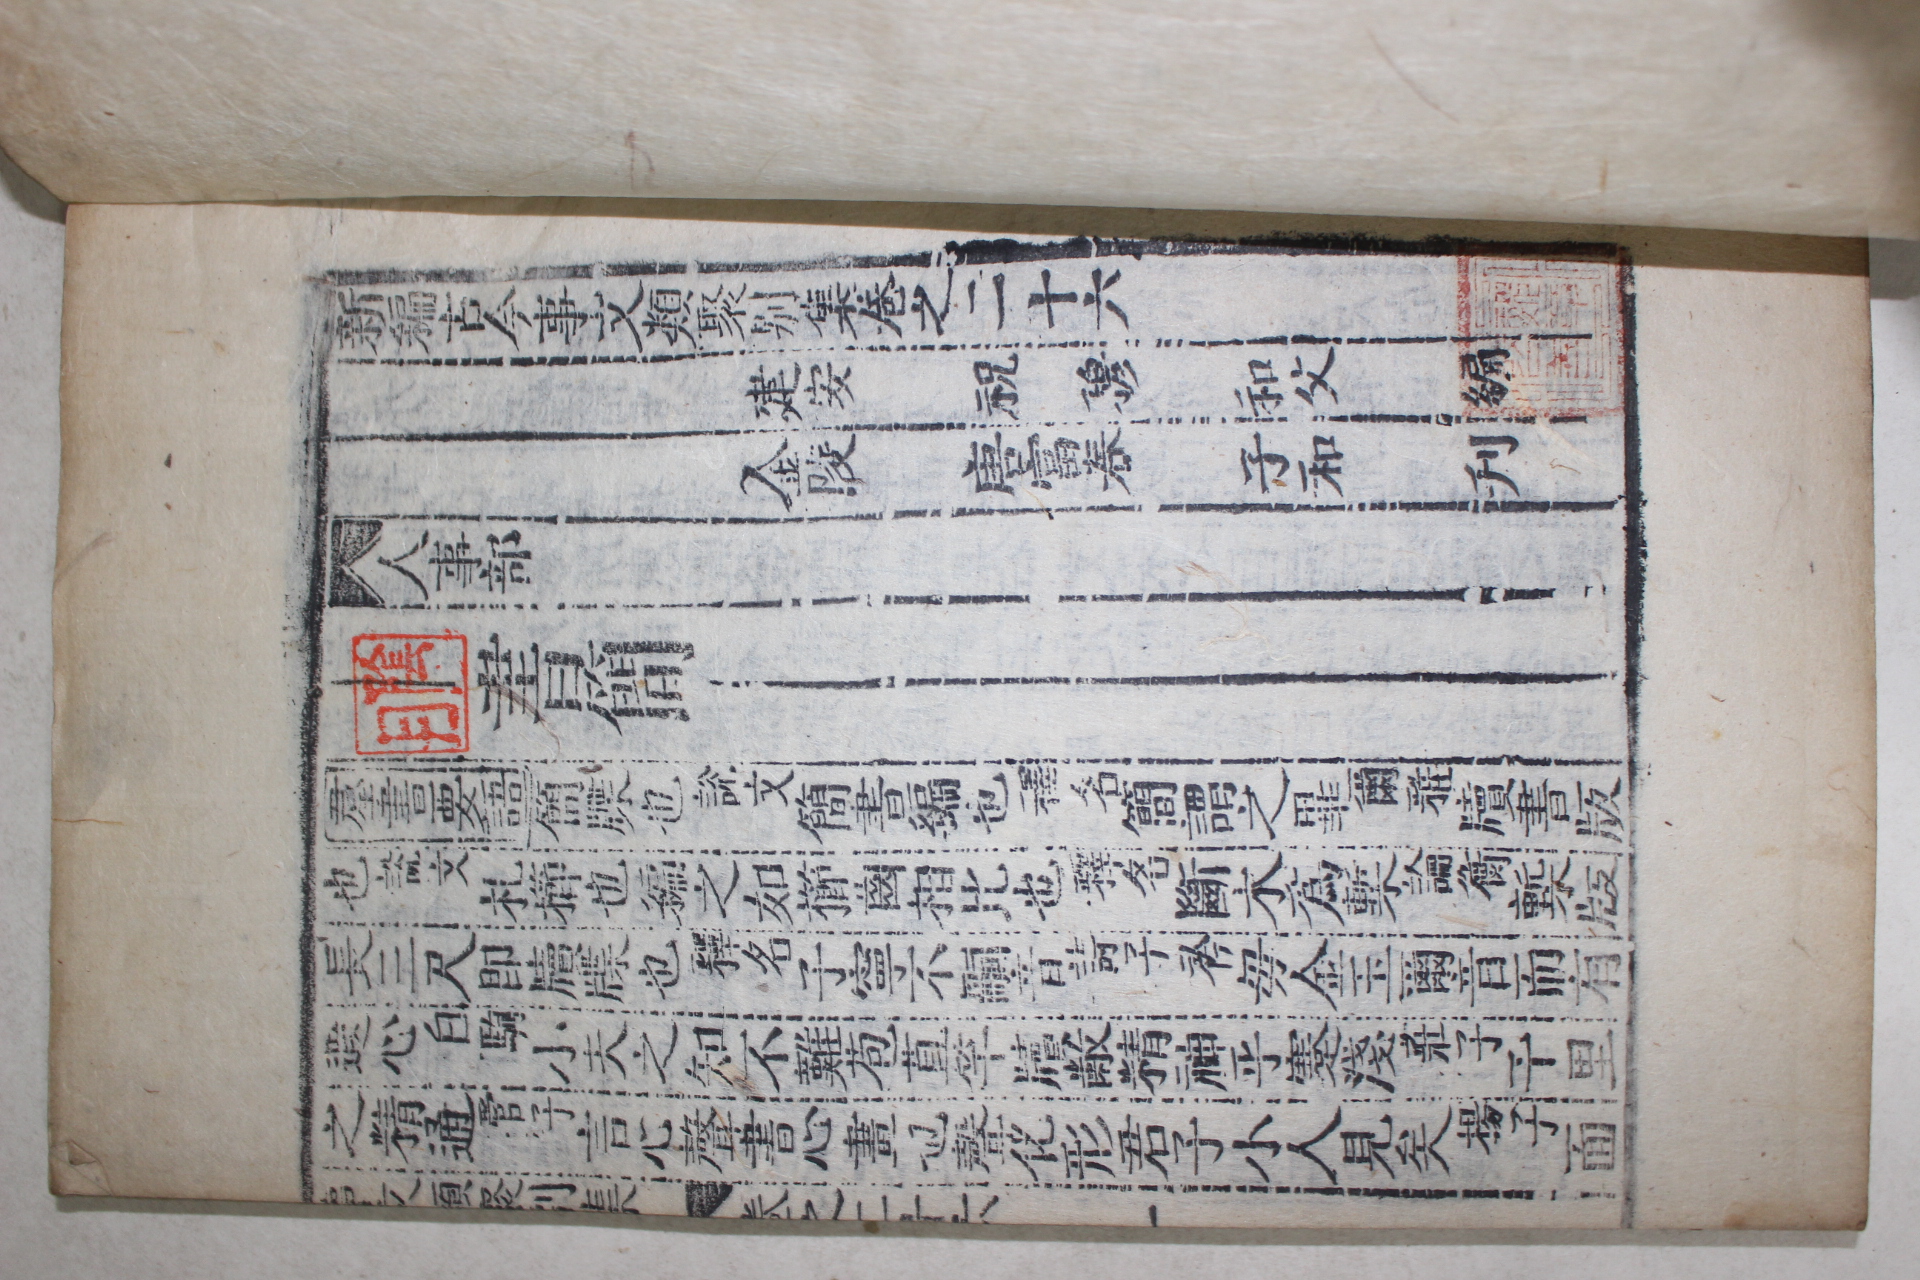 新編古今事文類聚別集卷之二十六
建安 祝 穆 和父 編
金陵 唐富春 子和 刊
人事部
書簡
羣書要語簡牒也說文簡書編也釋名簡謂之畢爾雅牘書版
也說文札櫛也編之如櫛齒相比也釋名斷木爲槧論衡槧版
長三尺即牘牒也釋名子寧不嗣音詩子衿毋金玉爾音而有
遐心白駒小夫之知不離苞苴竿牘敝精神乎蹇淺莊子千里
之精通管仔言心聲書心畫也聲化形君子小人見矣楊子面
事文類聚別集 卷之二十六 一